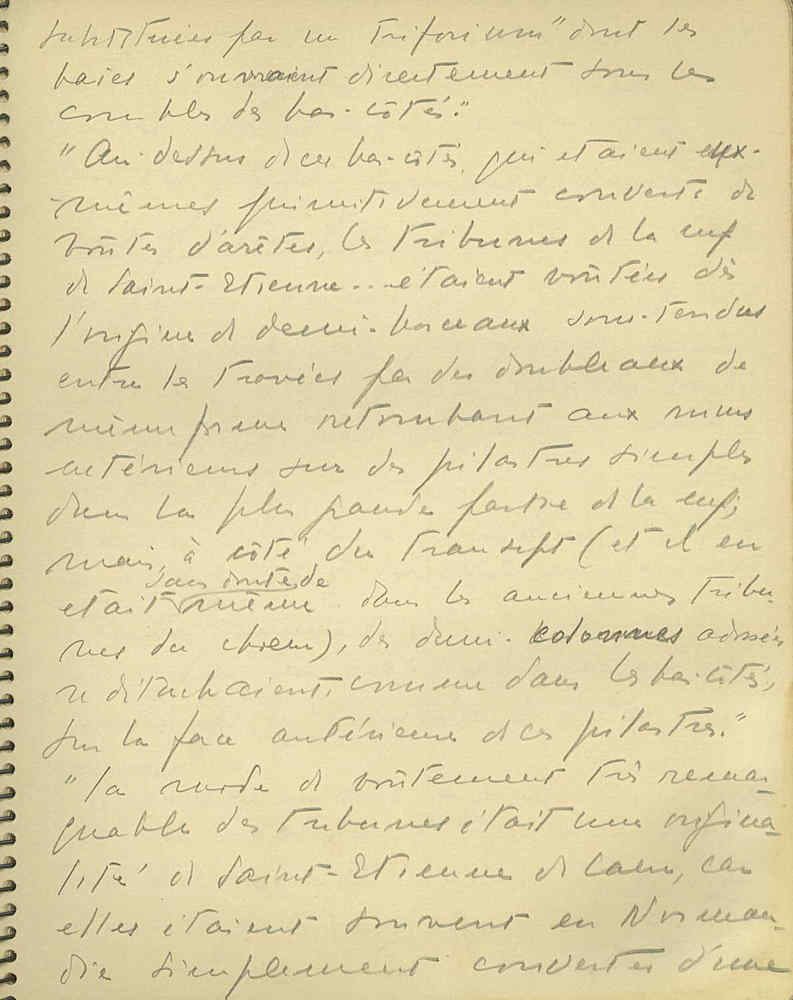 substituées par un triforium "dont les
baies s'ouvraient directement sous les
combles des bas-côtés."
"Au-dessus de ces bas-côtés, qui etaient eux-
-mêmes primitivement couverts de
voûtes d'arêtes, les tribunes de la nef
de Saint-Etienne.. étaient voûtées dès
l'origine de demi-berceaux sous-tendus
entre les travées par des doubleaux de
même forme retombant aux murs
extérieurs sur des pilastres simples
dans la plus grande partie de la nef;
mais, à côté du transept (et il en
sans doute de
etait même dans les anciennes tribu-
nes du choeur), des demi-colonnes adossées
se détachaient, comme dans les bas-côtés,
sur la face antérieure de ces pilastres."
"Le mode de voûtement très remar-
quable des tribunes était une origina-
lité de Saint-Etienne de Caen, car
elles étaient souvent en Norman-
die simplement couvertes d'une